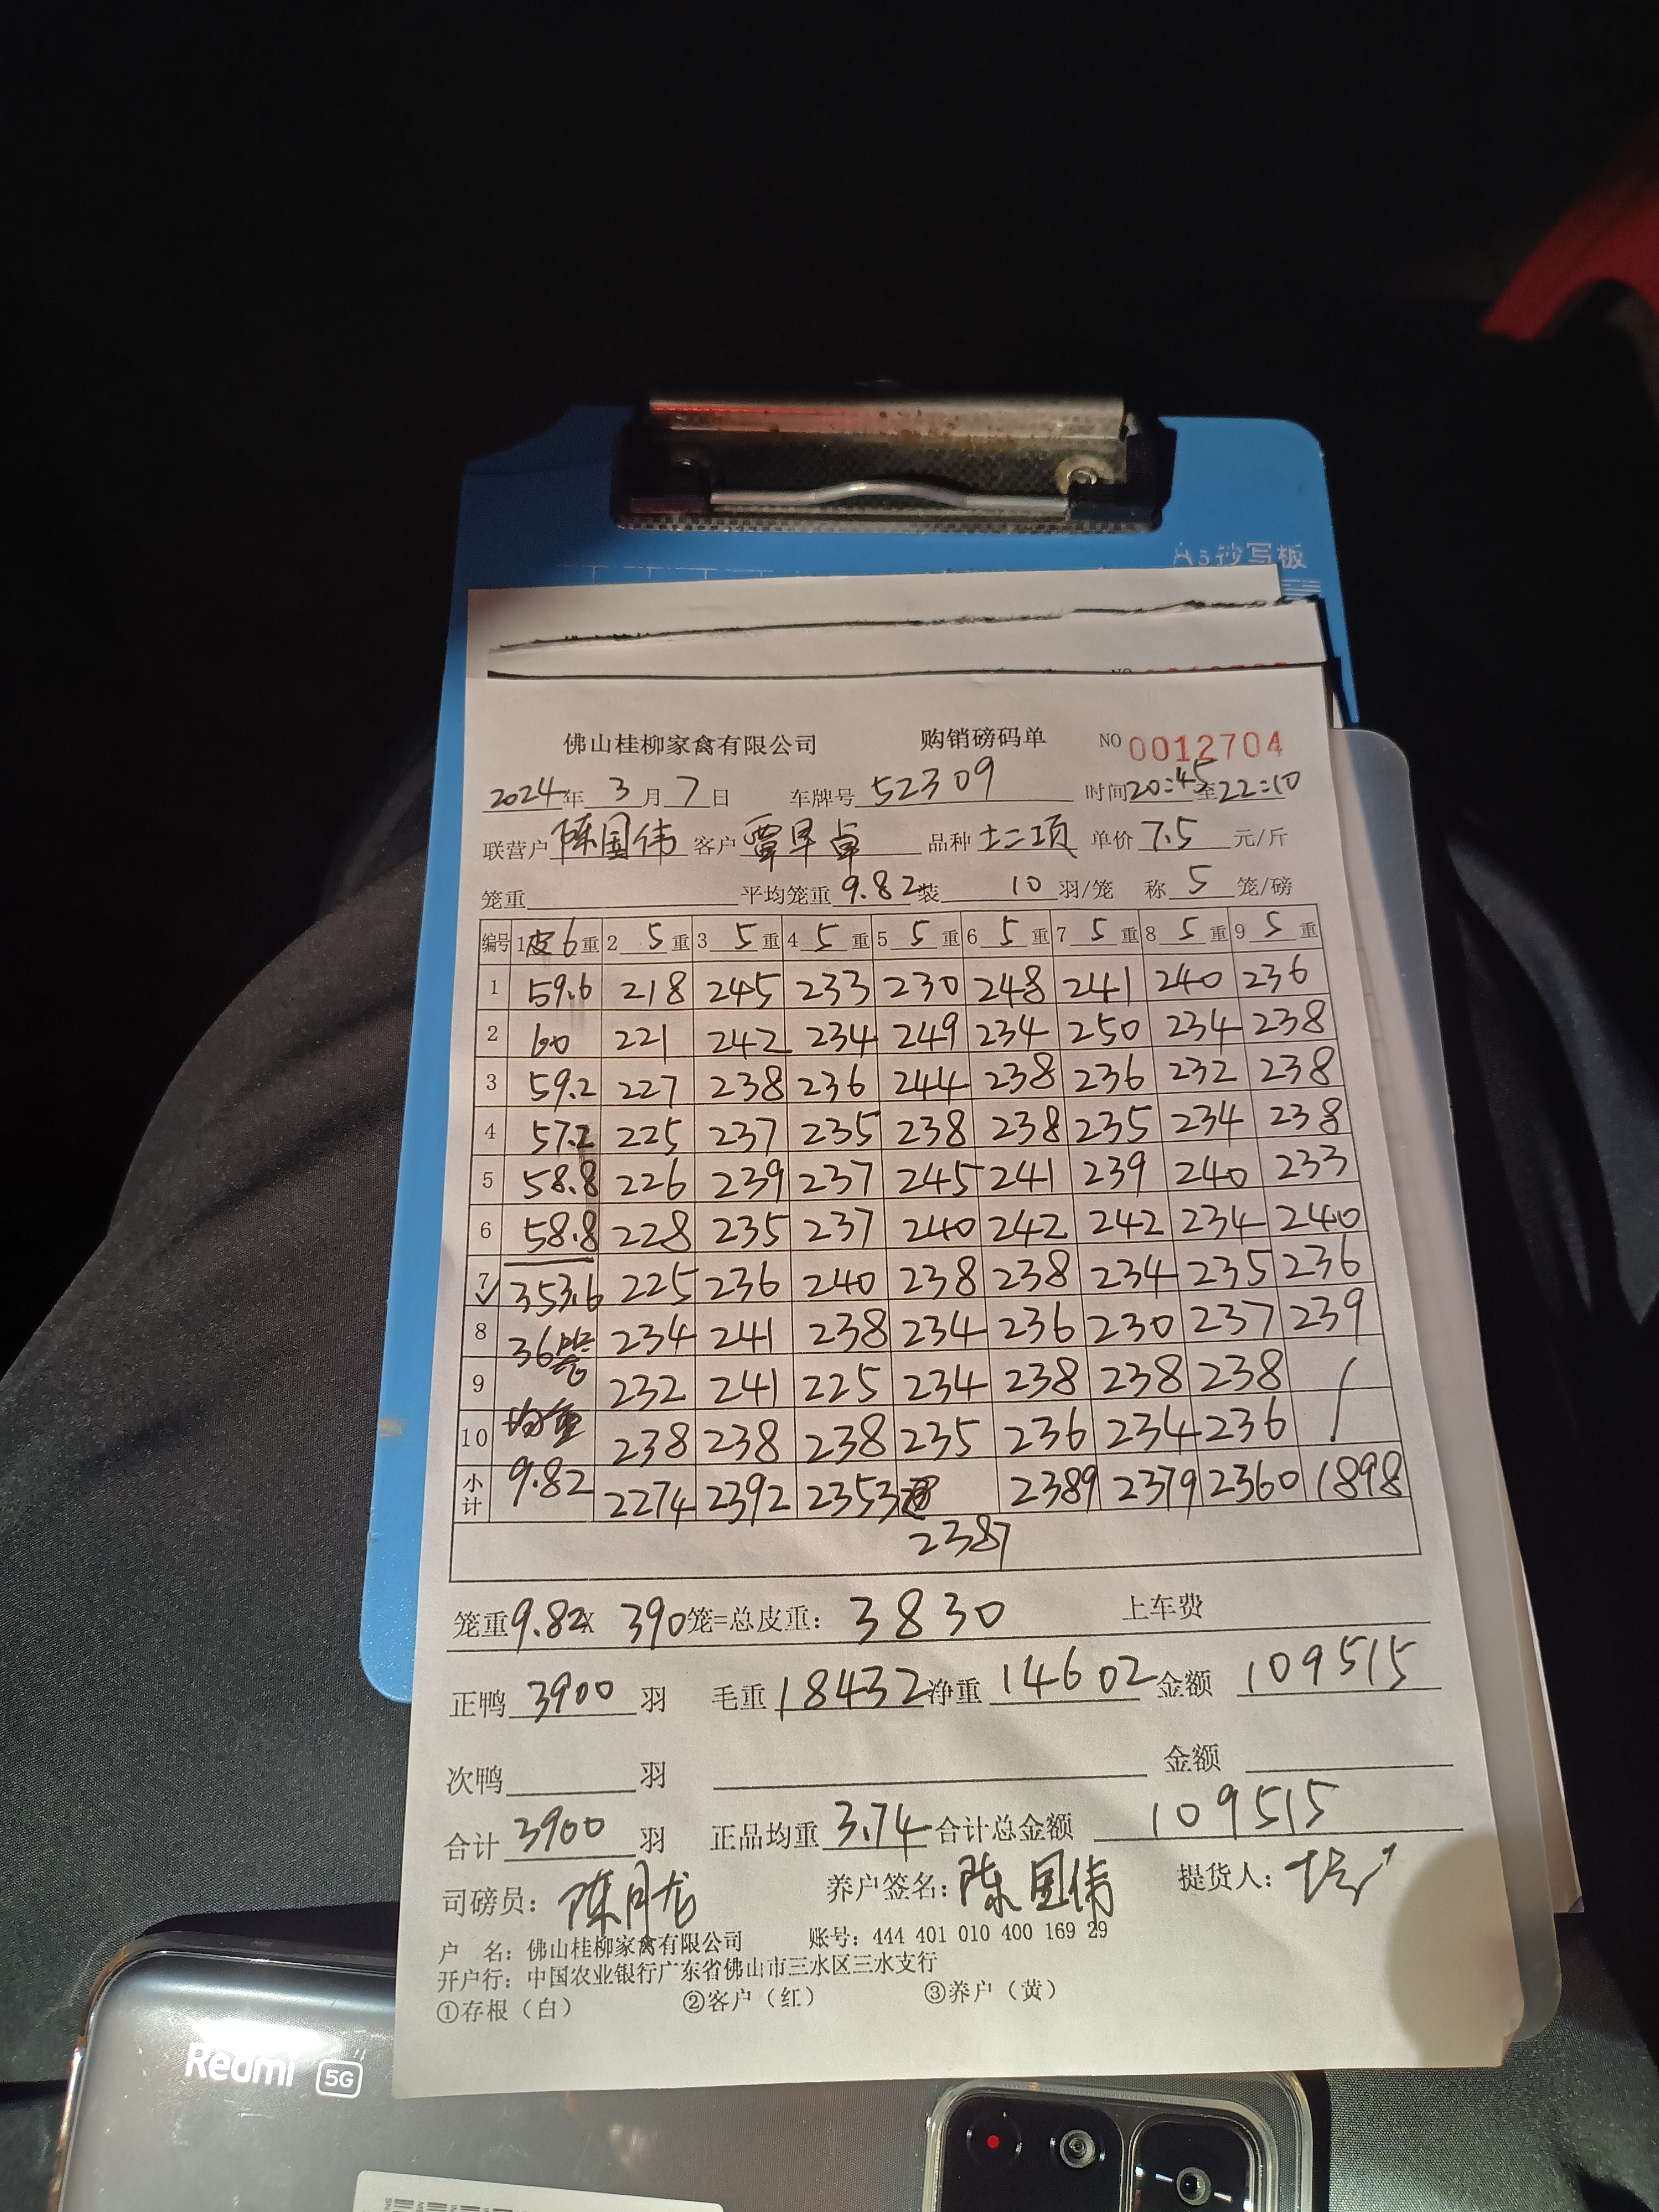 A5抄写板
佛山桂柳家禽有限公司 购销磅码单 NO 0012704
2024年 3月 7日 车牌号 52309 时间20:45至22:10
联营户 陈国伟 客户 覃早卓 品种 土二项 单价 7.5 元/斤
笼重 平均笼重 9.82 装 10 羽/笼 称 5 笼/磅
编号 1皮6重 2 5 重 3 5 重 4 5 重 5 5 重 6 5 重 7 5 重 8 5 重 9 5 重
1 59.6 218 245 233 230 248 241 240 236
2 60 221 242 234 249 234 250 234 238
3 59.2 227 238 236 244 238 236 232 238
4 57.2 225 237 235 238 238 235 234 238
5 58.8 226 239 237 245 241 239 240 233
6 58.8 228 235 237 240 242 242 234 240
7 353.6 225 236 240 238 238 234 235 236
8 36笼 234 241 238 234 236 230 237 239
9 232 241 225 234 238 238 238 /
10 均重 238 238 238 235 236 234 236 /
小计 9.82 2274 2392 2353 2389 2379 2360 1898
2387
笼重9.82X 390笼=总皮重: 3830 上车费
正鸭 3900 羽 毛重 18432 净重 14602 金额 109515
次鸭 羽 金额
合计 3900 羽 正品均重 3.74 合计总金额 109515
司磅员: 陈月龙 养户签名: 陈国伟 提货人:
户 名: 佛山桂柳家禽有限公司 账号: 444 401 010 400 169 29
开户行: 中国农业银行广东省佛山市三水区三水支行
①存根（白） ②客户（红） ③养户（黄）
Redmi 5G